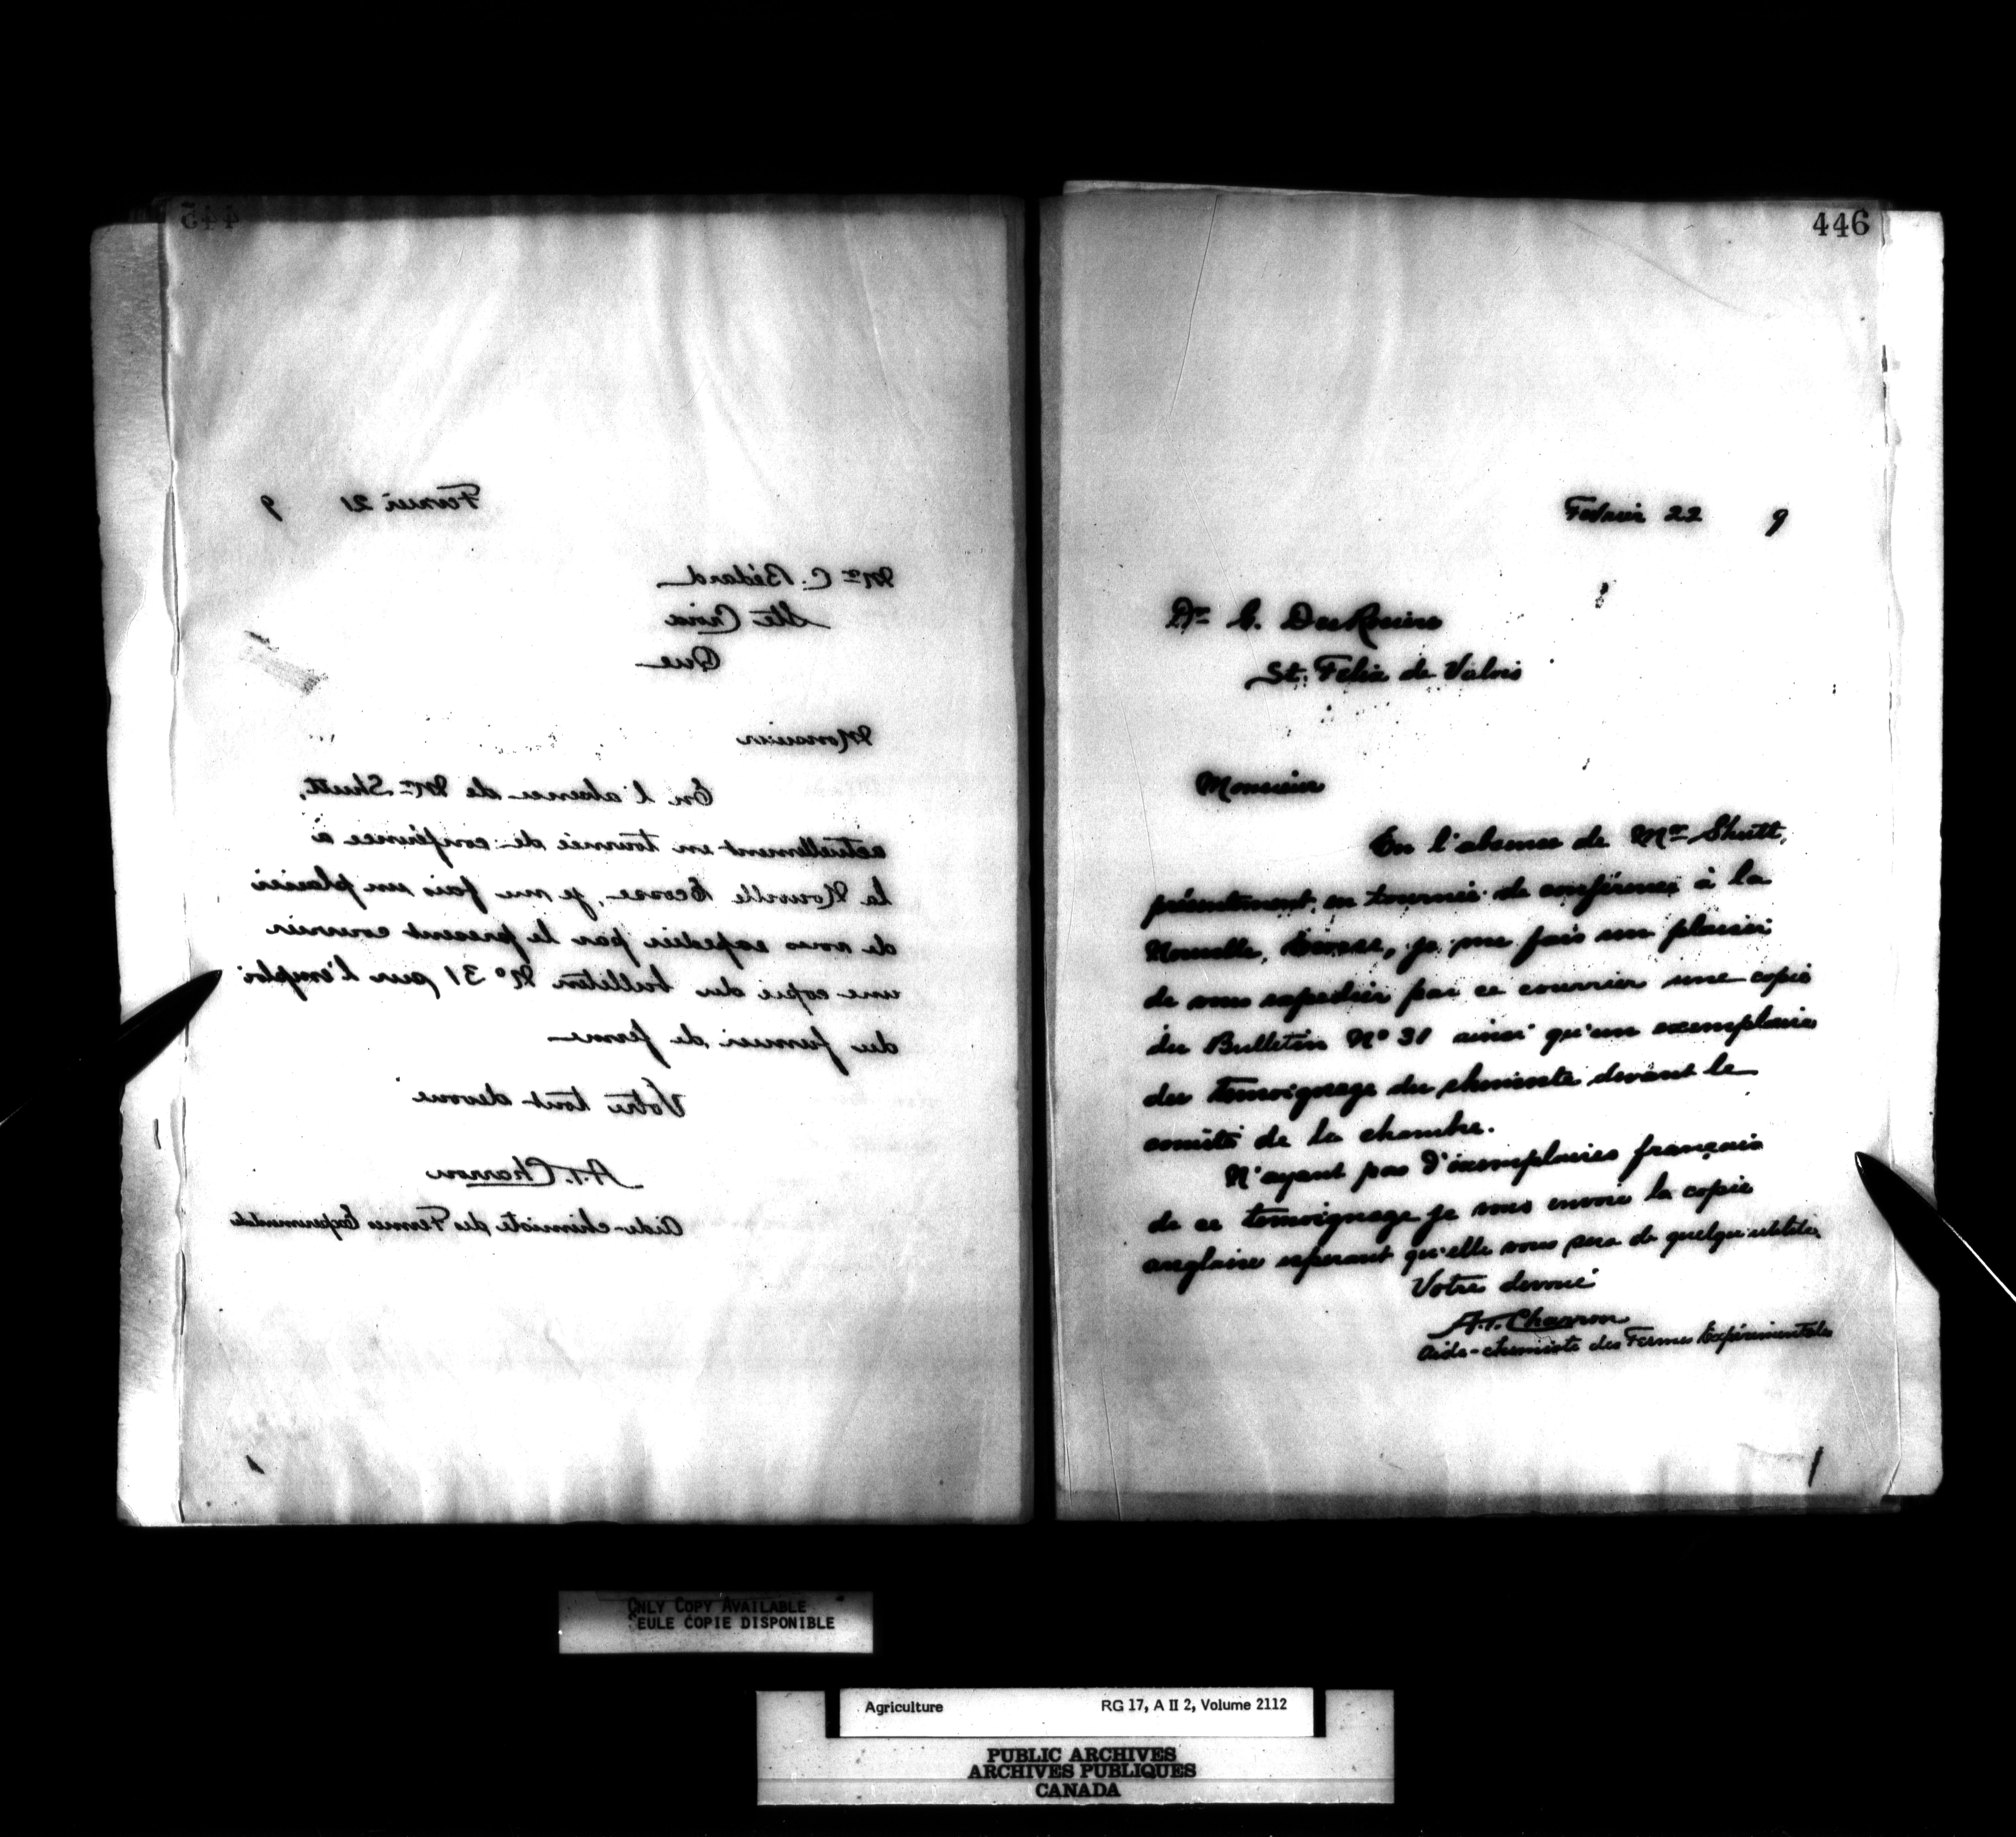 445
Fevrier 21 9
Mr C. Bédard
Ste Croix
Que
Monsieur
En l'absence de Mr Shutt,
actuellement en tournée de conférence à
la Nouvelle Ecosse, je me fais un plaisir
de vous expedier par le present courrier
une copie du bulletin No 31 sur l'emploi
du fumier de ferme
Votre tout devoué
A.T. Charron
Aide-chimiste des Fermes Experimentales
446
Fevrier 22 9
Dr C.
St. Felix de Valois
Monsieur
En l'absence de Mr Shutt,
présentement en tournée de conférences à la
Nouvelle Ecosse, je me fais un plaisir
de vous expedier par ce courrier une copie
du Bulletin No 31 ainsi qu'un exemplaire
du temoignage du chimiste devant le
comité de la chambre.
N'ayant pas d'exemplaires français
de ce temoignage je vous envoie la copie
anglaise esperant qu'elle vous sera de quelque utilité.
Votre devoué
A.T. Charron
Aide-chimiste des Fermes Expérimentales
ONLY COPY AVAILABLE
SEULE COPIE DISPONIBLE
Agriculture RG 17, A II 2, Volume 2112
PUBLIC ARCHIVES
ARCHIVES PUBLIQUES
CANADA